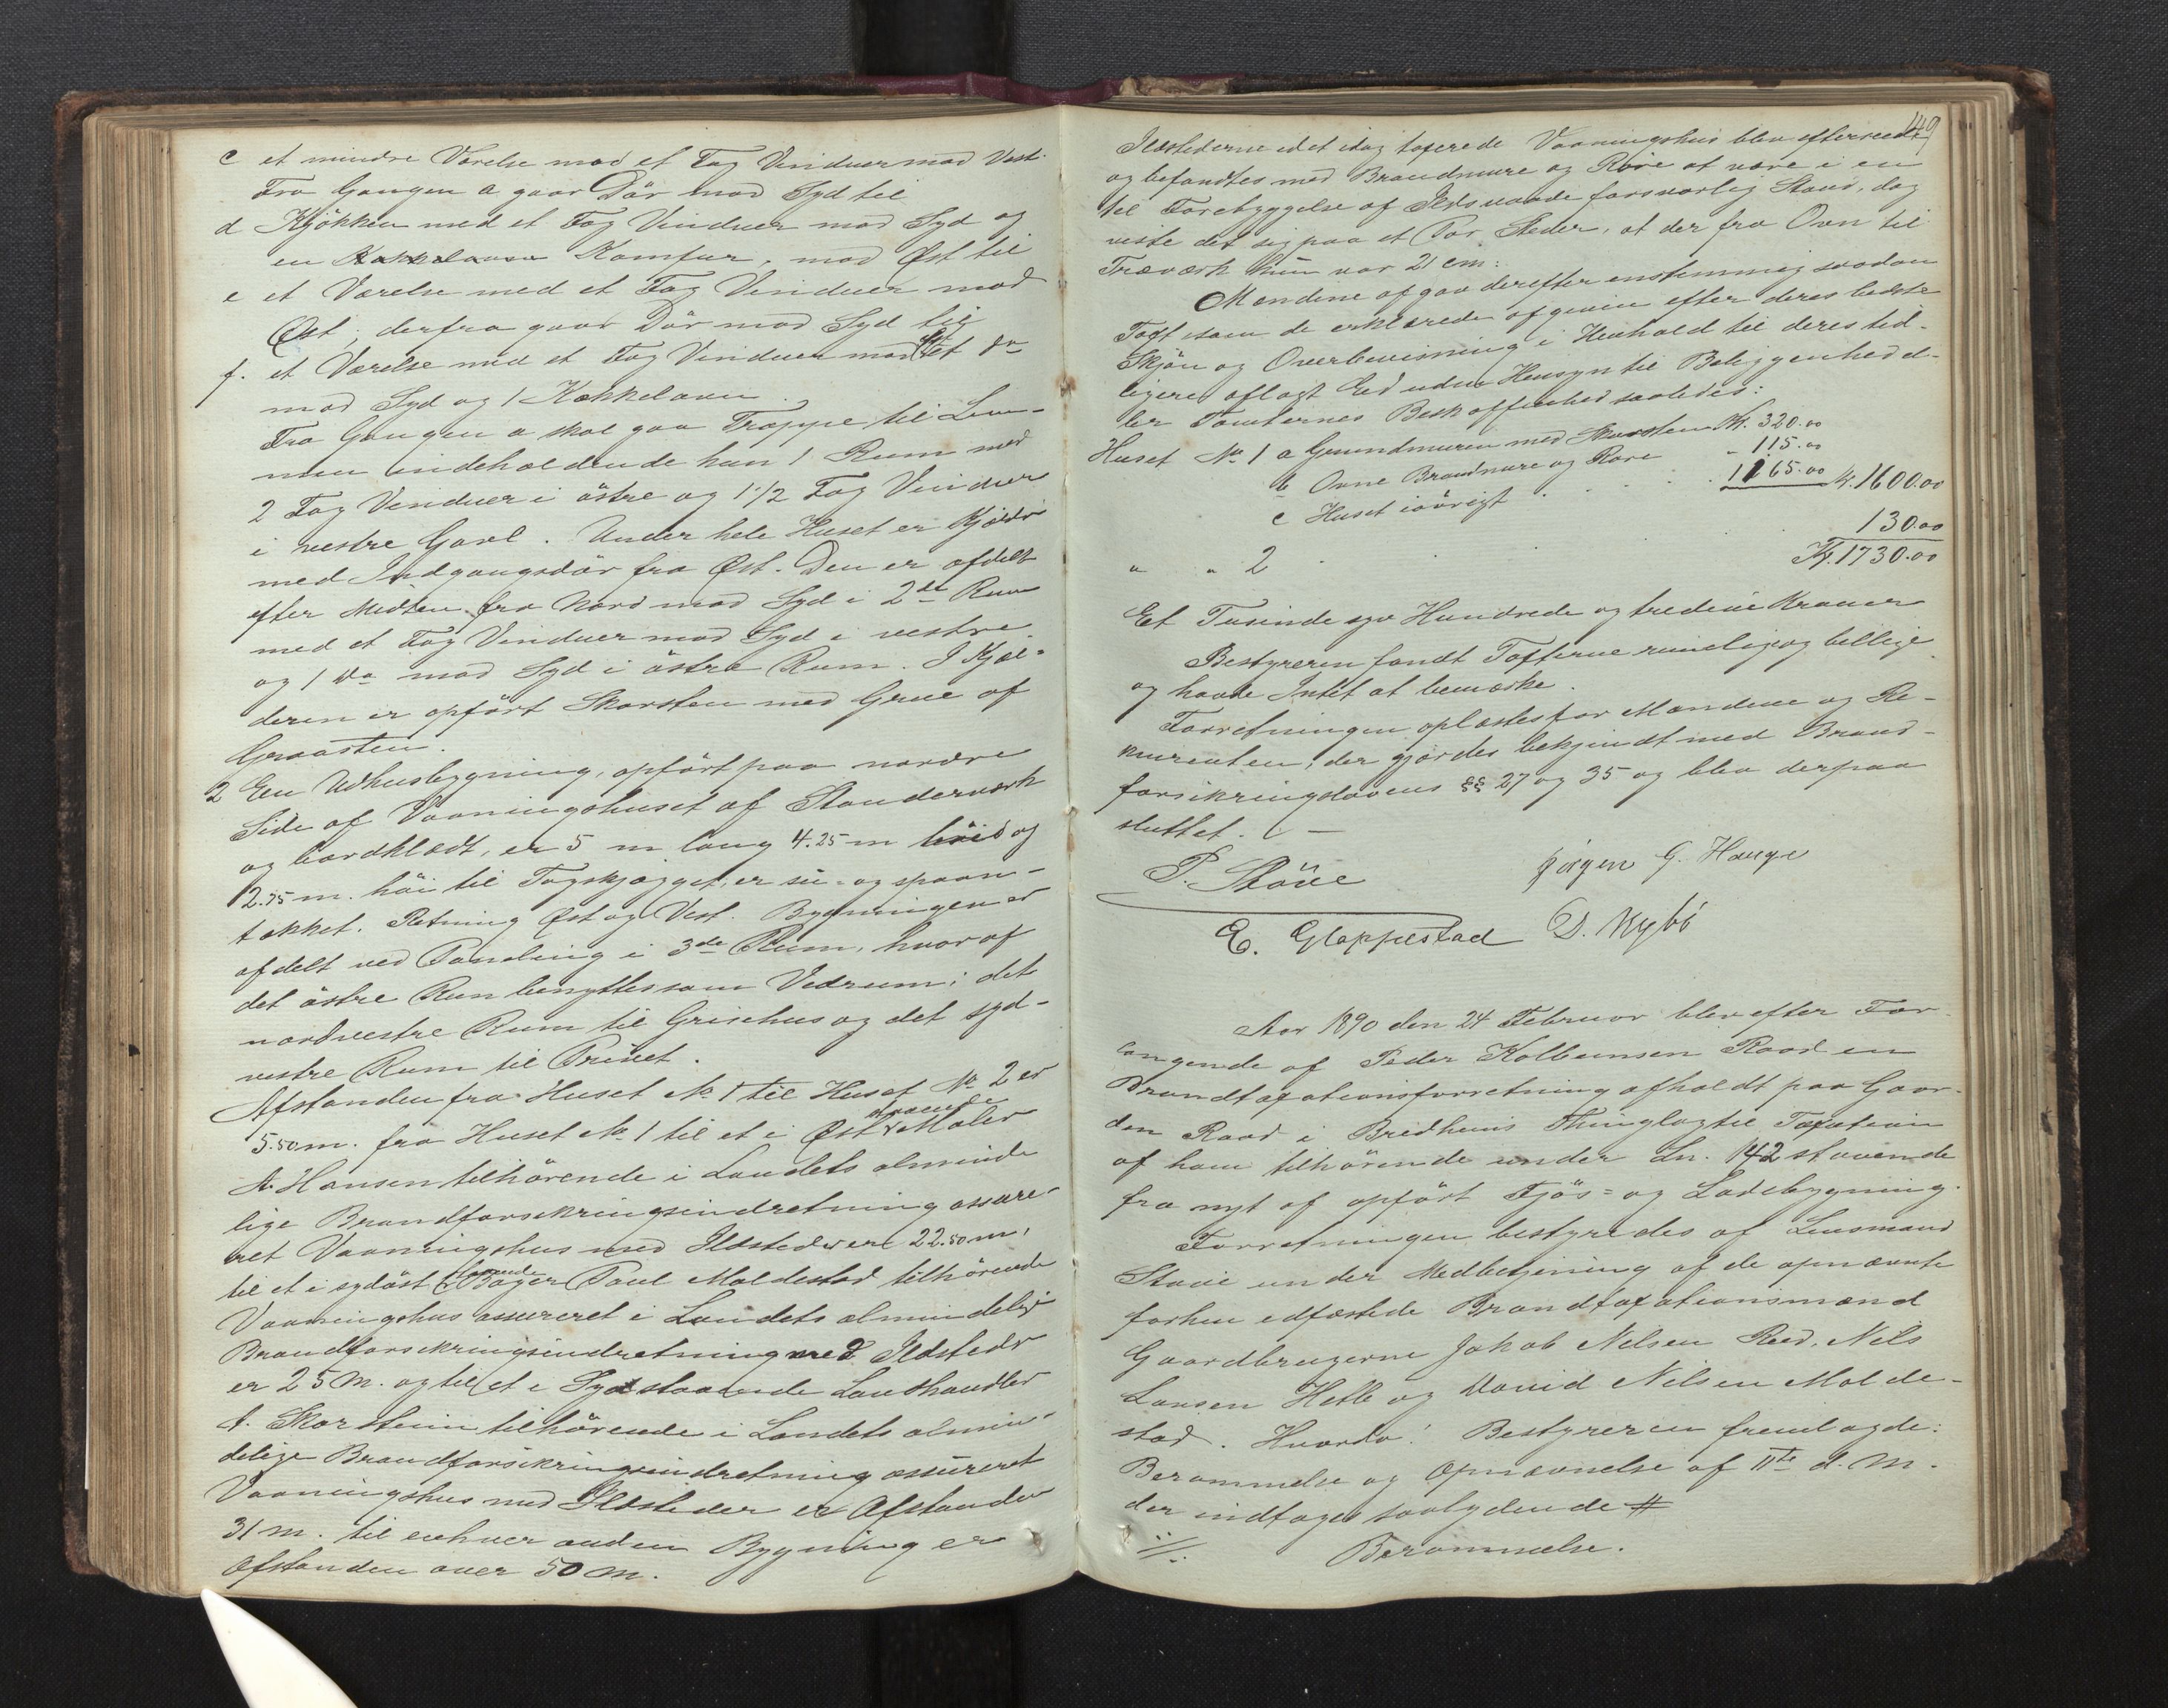 c et mindre Værelse med et Fag Vinduer mod Vest.
Fra Gangen a gaar Dör mod Syd til
d Kjökken med et Fag Vinduer mod Syd og
en Kakkelovn Komfur, mod Øst til
e et Værelse med et Fag Vinduer mod
Øst; derfra gaar Dör mod Syd til
f. et Værelse med et Fag Vinduer mod Øst et do
mod Syd og 1 Kakkelovn.
Fra Gangen a skal gaa Trappe til Lem-
men indeholdende kun 1 Rum med
2 Fag Vinduer i östre og 1 1/2 Fag Vinduer
i vestre Gavl. Under hele Huset er Kjælder
med Indgangsdör fra Øst. Den er afdelt
efter Midten fra Nord mod Syd i 2de Rum
med et Fag Vinduer mod Syd i vestre
og 1 do mod Syd i östre Rum. I Kjæl-
deren er opfört Skorsten med Grue af
Graasten.
2 En Udhusbygning, opfört paa nordre
Side af Vaaningshuset af Standerværk
og bordklædt, er 5 m lang 4.25 m bred og
2.75 m. höi til Tagskjægget, er su- og spaan-
takket. Retning Øst og Vest. Bygningen er
afdelt ved Paneling i 3de Rum, hvoraf
det östre Rum benyttes som Vedrum; det
nordvestre Rum til Grisehus og det syd-
vestre Rum til Privet.
Afstanden fra Huset No 1 til Huset No 2 er
5.50 m. fra Huset No 1 til et i Øst staaende Maler
A. Hansen tilhörende i Landets alminde
lige Brandforsikringsindretning assure-
ret Vaaningshus med Ildsteder er 22.50 m,
til et i sydöst staaende Bager Paul Moldestad tilhörende
Vaaningshus assureret i Landets almindelige
Brandforsikringsindretning med Ildsteder
er 25 m. og til et i Syd staaende Landhandler
A. Skarstein tilhörende i Landets almin-
delige Brandforsikringsindretning assureret
Vaaningshus med Ildsteder er Afstanden
31 m. til enhver anden Bygning er
Afstanden over 50 m.
149
Ildstederne i det idag taxerede Vaaningshus blev efterseede
og befandtes med Brandmure og Röre at være i en
til Forebyggelse af Ildsvaade forsvarlig Stand, dog
viste det sig paa et Par Steder, at der fra Ovn til
Træværk kun var 21 cm:
Mændene afgav derefter enstemmig saadan
Taxt som de erklærede afgiven efter deres bedste
Skjön og Overbevisning i Henhold til deres tid-
ligere aflagt Eed uden Hensyn til Beliggenhed el-
ler Tomternes Beskaffenhed saaledes:
Huset No 1 a Grundmuren med Skorsten Kr. 320.00
b Ovne Brandmure og Röre " 115.00
c Huset iövrigt . . . . . 1165.00 Kr. 1600.00
" " 2 . . . 130.00
Kr. 1730.00
Et Tusinde syv Hundrede og tredive Kroner
Bestyreren fandt Taxterne rimelig og billige
og havde Intet at bemærke.
Forretningen oplæstes for Mændene og Re-
kvirenten, der gjordes bekjendt med Brand-
forsikringslovens §§ 27 og 35 og blev derpaa
sluttet. —
P. Stöve Jörgen G. Hauge
E. Gloppestad D. Nybö
Aar 1890 den 24 Februar blev efter For-
langende af Peder Kolbeinsen Raad en
Brandtaxationsforretning afholdt paa Gaar-
den Raad i Bredheims Thinglag til Taxation
af ham tilhörende under Ln. 142 staaende
fra nyt af opfört Fjös- og Ladebygning.
Forretningen bestyredes af Lensmand
Stöve under Medbetjening af de opnævnte
forhen edfæstede Brandtaxationsmænd
Gaardbrugerne Jakob Nilsen Reed, Nils
Larsen Hetle og David Nilsen Molde-
stad. Hvorda! Bestyreren fremlagde:
Berammelse og Opnævnelse af 11te d. M.
der indtages saalydende #
·//· Berammelse.